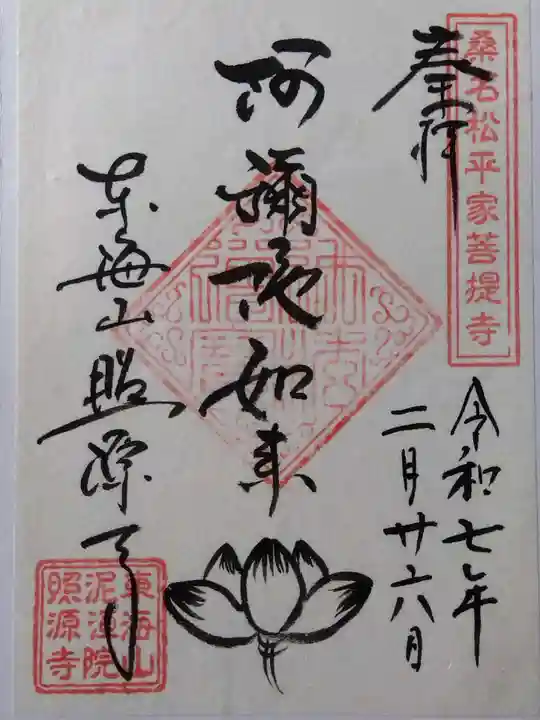 桑名松平家菩提寺
奉拝
令和七年
二月廿六月
阿彌陀如来
東海山照源寺
東海山
泥洹院
照源寺